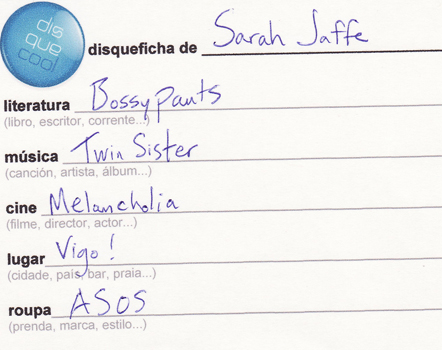 dis
que
cool
disqueficha de Sarah Jaffe
literatura Bossypants
(libro, escritor, corrente...)
música Twin Sister
(canción, artista, álbum...)
cine Melancholia
(filme, director, actor...)
lugar Vigo!
(cidade, país, bar, praia...)
roupa ASOS
(prenda, marca, estilo...)